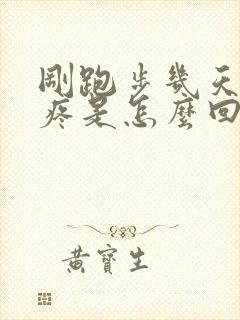 剛跑步幾天
疼是怎麼回
黃寶生